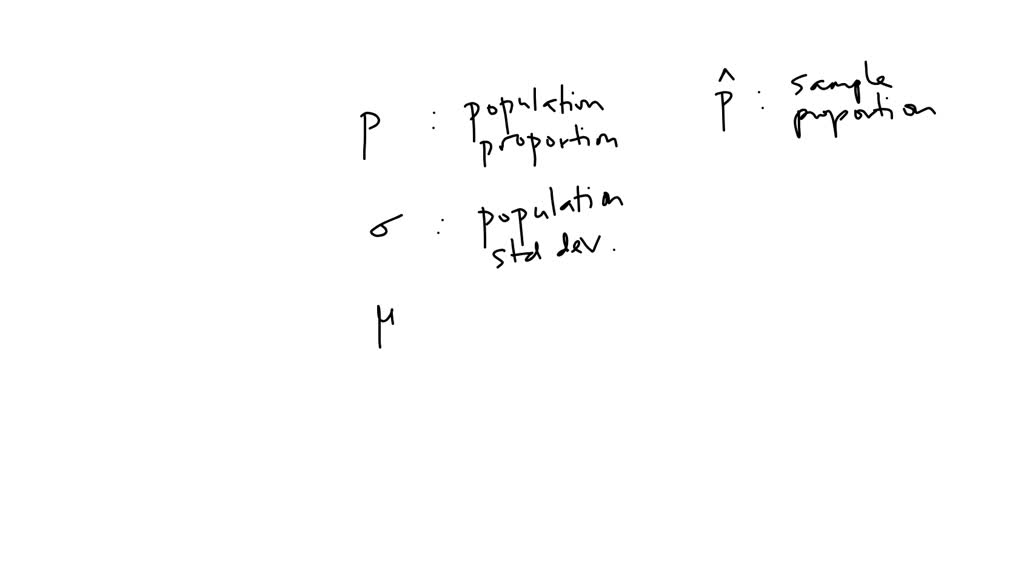 p : population proportion
p̂ : sample proportion
σ : population std dev.
μ